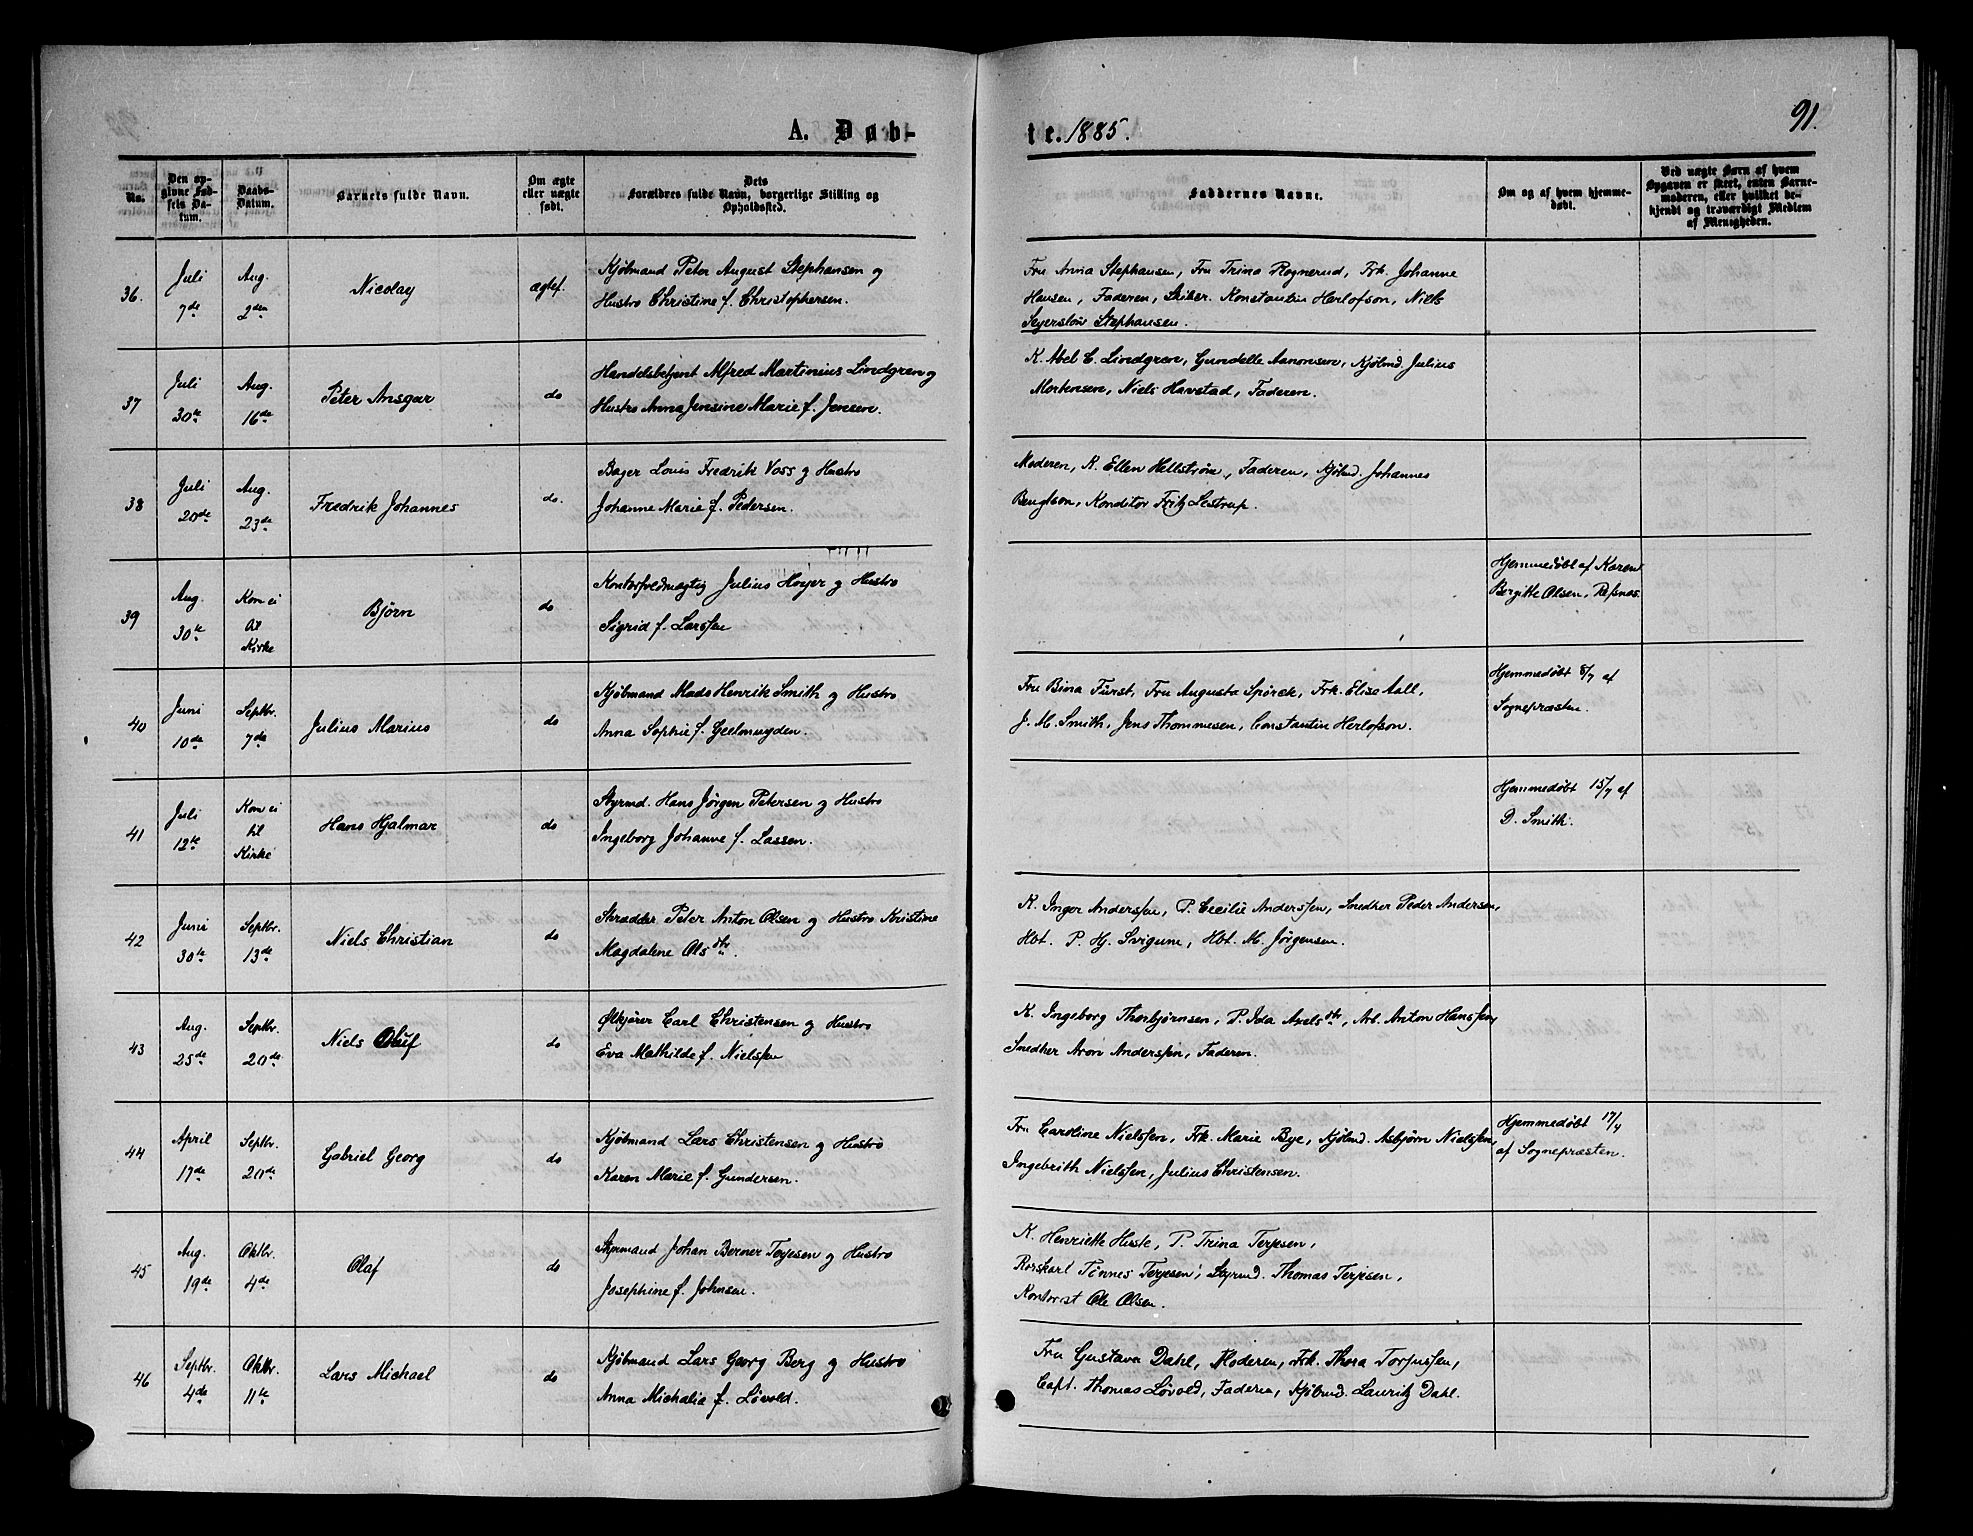 A. Døb-
te. 1885.
91.
No.
Den op-
givne Fød-
sels Da-
tum.
Daabs-
Datum.
Barnets fulde Navn.
Om ægte
eller uægte
født.
Dets
Forældres fulde Navn, borgerlige Stilling og
Opholdssted.
Faddernes Navne.
Om og af hvem hjemme-
døbt.
Ved uægte Børn af hvem
Opgaven er skeet, enten Barne-
moderen, eller hvilket be-
kjendt og troværdigt Medlem
af Menigheden.
36. Juli 7de Aug. 2den Nicolay ægtef.
Kjøbmand Peter August Stephansen og
Hustro Christine f. Christophersen.
Fru Anna Stephansen, Fru Trina Rognerud, Frk. Johanne
Hansen, Faderen, Skiber. Konstantin Herlofson, Niels
Segerslöv Stephansen.
37 Juli 30te Aug. 16de Peter Ansgar do
Handelsbetjent Alfred Martinius Lindgren og
Hustro Anna Jensine Marie f. Jensen.
K. Abel C. Lindgren, Gundelle Aanonsen, Kjøbmd. Julius
Mortensen, Niels Havstad, Faderen.
38 Juli 20de Aug. 23de Fredrik Johannes do.
Bager Louis Fredrik Voss og Hustro
Johanne Marie f. Pedersen.
Moderen, K. Ellen Hellström, Faderen, Kjøbmd. Johannes
Bengtson, Konditor Fritz Lestrup.
39 Aug. 30te Kom ei til Kirke Bjørn do
Kontorfuldmægtig Julius Hoyer og Hustro
Sigrid f. Larssen
Hjemmedøbt af Karen
Birgitte Olsen, Refsnæs.
40 Juni 10de Septbr. 7de Julius Marius do
Kjøbmand Mads Henrik Smith og Hustro
Anna Sophie f. Geelmuyden.
Fru Bina Fürst, Fru Augusta Spörck, Frk. Elise Aall,
J. M. Smith, Jens Thommesen, Constantin Herlofson.
Hjemmedøbt 8/7 af
Sognepræsten.
41 Juli 12te Kom ei til Kirke Hans Hjalmar do
Styrmd. Hans Jörgen Petersen og Hustro
Ingeborg Johanne f. Lassen.
Hjemmedøbt 15/7 af
D. Smith.
42 Juni 30te Septbr. 13de Niels Christian do
Skrædder Peter Anton Olsen og Hustro Kristine
Magdalene Olsdtr.
K. Inger Anderssen, P. Cecilie Anderssen, Snedker Peder Andersen,
Hbt. P. Hj. Svigum, Hbt. M. Jörgensen.
43 Aug. 25de Septbr. 20de Niels Oluf do
Ølkjører Carl Christensen og Hustro
Eva Mathilde f. Nielssen
K. Ingeborg Thorbjørnsen, P. Ida Axelsdtr, Arb. Anton Hanssen,
Snedker Aron Anderssen, Faderen.
44 April 17de Septbr. 20de Gabriel Georg do
Kjöbmand Lars Christensen og Hustro
Karen Marie f. Gundersen.
Fru Caroline Nielssen, Frk. Marie Bye, Kjöbmd. Asbjørn Nielssen,
Ingebrith Nielssen, Julius Christensen.
Hjemmedøbt 17/4
af Sognepræsten.
45 Aug. 19de Oktbr. 4de Olaf do
Styrmand Johan Berner Terjesen og Hustro
Josephine f. Johnsen.
K. Henriette Huste, P. Trina Terjesen,
Rorskarl Tönnes Terjesen, Styrmd. Thomas Terjesen,
Kontorist Ole Olsen.
46 Septbr. 4de Oktbr. 11te Lars Michael do
Kjöbmand Lars Georg Berg og Hustro
Anna Michalia f. Lövold.
Fru Gustava Dahl, Moderen, Frk. Thora Torjussen,
Capt. Thomas Lövold, Faderen, Kjöbmd. Lauritz Dahl.